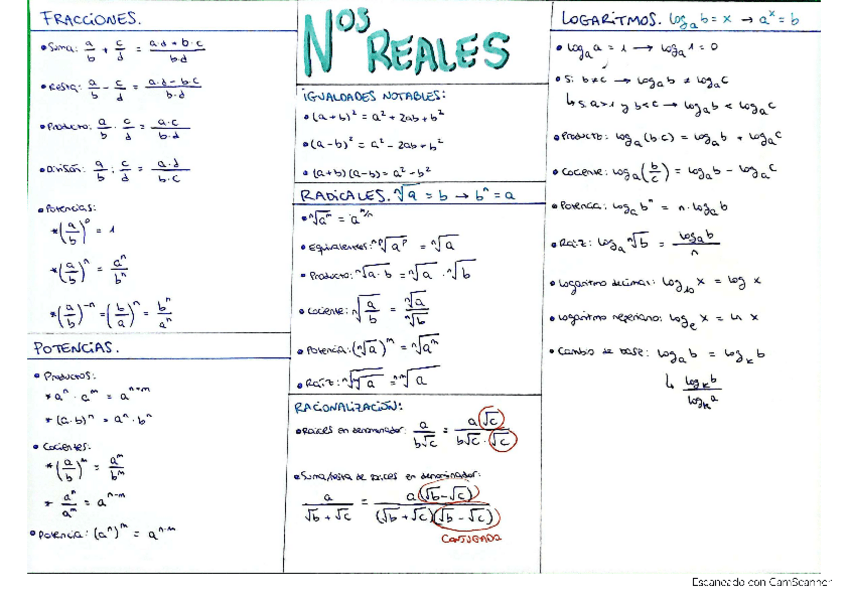 FRACCIONES.
• Suma: a/b + c/d = (a·d + b·c)/(b·d)
• Resta: a/b - c/d = (a·d - b·c)/(b·d)
• Producto: a/b · c/d = (a·c)/(b·d)
• División: a/b : c/d = (a·d)/(b·c)
• Potencias:
*(a/b)⁰ = 1
*(a/b)ⁿ = aⁿ/bⁿ
*(a/b)⁻ⁿ = (b/a)ⁿ = bⁿ/aⁿ
POTENCIAS.
• Productos:
* aⁿ · aᵐ = aⁿ⁺ᵐ
* (a·b)ⁿ = aⁿ · bⁿ
• Cocientes:
*(a/b)ᵐ = aᵐ/bᵐ
* aⁿ/aᵐ = aⁿ⁻ᵐ
• Potencia: (aⁿ)ᵐ = aⁿ·ᵐ
Nos REALES
IGUALDADES NOTABLES:
• (a+b)² = a² + 2ab + b²
• (a-b)² = a² - 2ab + b²
• (a+b)(a-b) = a² - b²
RADICALES. ⁿ√a = b → bⁿ = a
• ⁿ√aᵐ = aᵐ/ⁿ
• Equivalentes: ⁿᵖ√aᵖ = ⁿ√a
• Producto: ⁿ√a·b = ⁿ√a · ⁿ√b
• Cociente: ⁿ√(a/b) = ⁿ√a/ⁿ√b
• Potencia: (ⁿ√a)ᵐ = ⁿ√aᵐ
• Raíz: ⁿ√ᵐ√a = ⁿᵐ√a
RACIONALIZACIÓN:
• Raíces en denominador: a/(b√c) = (a√c)/(b√c·√c)
• Suma/resta de raíces en denominador:
a/(√b + √c) = a(√b - √c)/((√b + √c)(√b - √c))
CONJUGADA
LOGARITMOS. logₐ b = x → aˣ = b
• logₐ a = 1 → logₐ 1 = 0
• Si b≠c → logₐ b ≠ logₐ c
↳ si a>1 y b<c → logₐ b < logₐ c
• Producto: logₐ(bc) = logₐ b + logₐ c
• Cociente: logₐ(b/c) = logₐ b - logₐ c
• Potencia: logₐ bⁿ = n · logₐ b
• Raíz: logₐ ⁿ√b = logₐ b/n
• Logaritmo decimal: log₁₀ x = log x
• Logaritmo neperiano: logₑ x = ln x
• Cambio de base: logₐ b = logₖ b
↳ logₖ b/logₖ a
Escaneado con CamScanner